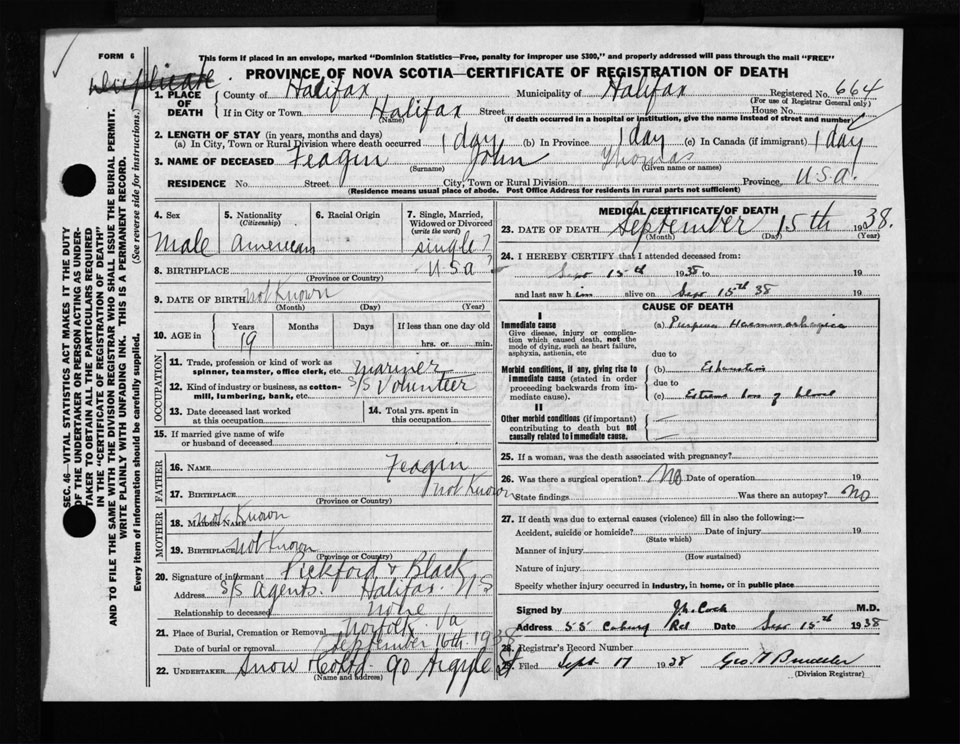 FORM 6
This form if placed in an envelope, marked "Dominion Statistics—Free, penalty for improper use $300," and properly addressed will pass through the mail "FREE"
Duplicate.
PROVINCE OF NOVA SCOTIA—CERTIFICATE OF REGISTRATION OF DEATH
1. PLACE OF DEATH
County of Halifax Municipality of Halifax Registered No. 664
(For use of Registrar General only)
If in City or Town Halifax Street House No.
(Name) (If death occurred in a hospital or institution, give the name instead of street and number)
2. LENGTH OF STAY (in years, months and days)
(a) In City, Town or Rural Division where death occurred 1 day (b) In Province 1 day (c) In Canada (if immigrant) 1 day
3. NAME OF DECEASED Feagin John Thomas
(Surname) (Given name or names)
RESIDENCE No. Street City, Town or Rural Division Province U.S.A.
(Residence means usual place of abode. Post Office Address for residents in rural parts not sufficient)
4. Sex
Male
5. Nationality
(Citizenship)
American
6. Racial Origin
7. Single, Married,
Widowed or Divorced
(write the word)
single?
8. BIRTHPLACE U.S.A?
(Province or Country)
9. DATE OF BIRTH not Known
(Month) (Day) (Year)
10. AGE in
Years Months Days If less than one day old
19 hrs. or min.
OCCUPATION
11. Trade, profession or kind of work as
spinner, teamster, office clerk, etc. mariner
12. Kind of industry or business, as cotton-
mill, lumbering, bank, etc. S/S Volunteer
13. Date deceased last worked
at this occupation
14. Total yrs. spent in
this occupation
15. If married give name of wife
or husband of deceased
FATHER
16. NAME Feagin
17. BIRTHPLACE not Known
(Province or Country)
MOTHER
18. MAIDEN NAME not Known
19. BIRTHPLACE not Known
(Province or Country)
20. Signature of informant Pickford & Black
Address S/S Agents. Halifax N-S
Relationship to deceased none
21. Place of Burial, Cremation or Removal Norfolk. Va
Date of burial or removal September 16th. 1938
22. UNDERTAKER Snow & Co Ltd. 90 Argyle St
(Name and address)
MEDICAL CERTIFICATE OF DEATH
23. DATE OF DEATH September 15th 1938.
(Month) (Day) (Year)
24. I HEREBY CERTIFY that I attended deceased from:
Sept 15th 1938 to 19
and last saw him alive on Sept 15th 38 19
CAUSE OF DEATH
I
Immediate cause
Give disease, injury or complica-
tion which caused death, not the
mode of dying, such as heart failure,
asphyxia, asthenia, etc
(a) Purpura Haemorrhagica
due to
Morbid conditions, if any, giving rise to
immediate cause (stated in order
proceeding backwards from im-
mediate cause).
(b) Exhaustion
due to
(c) Extreme loss of blood
II
Other morbid conditions (if important)
contributing to death but not
causally related to immediate cause.
25. If a woman, was the death associated with pregnancy?
26. Was there a surgical operation? No Date of operation 19
State findings Was there an autopsy? No
27. If death was due to external causes (violence) fill in also the following:—
Accident, suicide or homicide? Date of injury 19
(State which)
Manner of injury
(How sustained)
Nature of injury
Specify whether injury occurred in industry, in home, or in public place
Signed by Cock M.D.
Address 55 Coburg Rd Date Sept 15th 1938
28. Registrar's Record Number
29. Filed Sept 17 1938 Geo
(Division Registrar)
SEC. 46—VITAL STATISTICS ACT MAKES IT THE DUTY
OF THE UNDERTAKER OR PERSON ACTING AS UNDER-
TAKER TO OBTAIN ALL THE PARTICULARS REQUIRED
IN THE "CERTIFICATE OF REGISTRATION OF DEATH"
AND TO FILE THE SAME WITH THE DIVISION REGISTRAR WHO SHALL ISSUE THE BURIAL PERMIT.
WRITE PLAINLY WITH UNFADING INK. THIS IS A PERMANENT RECORD.
Every item of information should be carefully supplied. (See reverse side for instructions.)